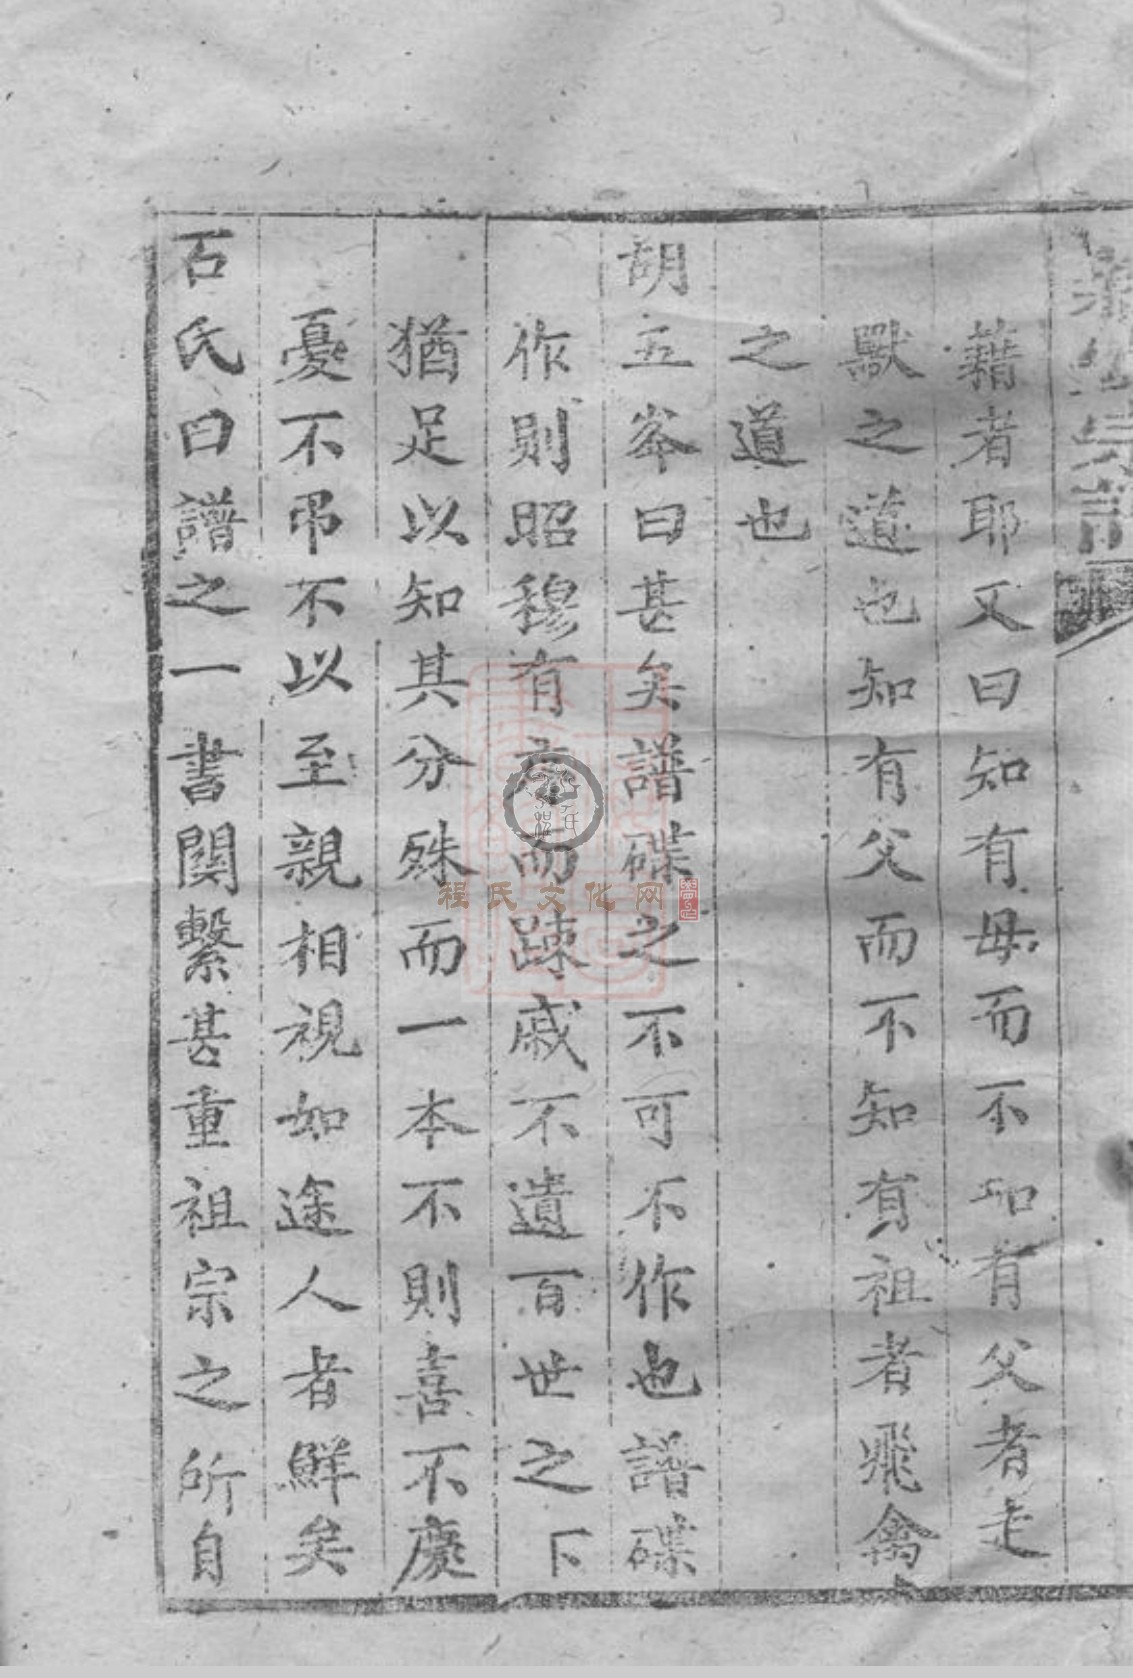 籍者耶又曰知有母而不知有父者走
獸之道也知有父而不知有祖者飛禽
之道也
胡五峯曰甚矣譜碟之不可不作也譜碟
作則昭穆有序而踈戚不遺百世之下
猶足以知其分殊而一本不則喜不慶
憂不弔不以至親相視如途人者鮮矣
石氏曰譜之一書關繫甚重祖宗之所自
程氏文化网